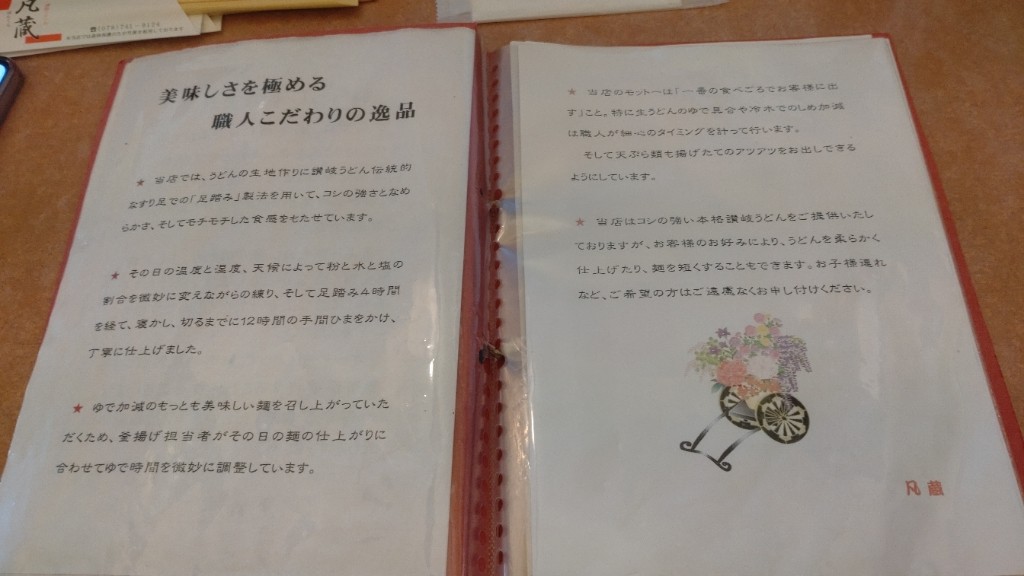 凡蔵
美味しさを極める
職人こだわりの逸品
★ 当店では、うどんの生地作りに讃岐うどん伝統的
なすり足での「足踏み」製法を用いて、コシの強さとなめ
らかさ、そしてモチモチした食感をもたせています。
★ その日の温度と湿度、天候によって粉と水と塩の
割合を微妙に変えながらの練り、そして足踏み4時間
を経て、寝かし、切るまでに12時間の手間ひまをかけ、
丁寧に仕上げました。
★ ゆで加減のもっとも美味しい麺を召し上がっていた
だくため、釜揚げ担当者がその日の麺の仕上がりに
合わせてゆで時間を微妙に調整しています。
★ 当店のモットーは「一番の食べごろでお客様に出
す」こと。特に生うどんのゆで具合や冷水でのしめ加減
は職人が細心のタイミングを計って行います。
そして天ぷら類も揚げたてのアツアツをお出しできる
ようにしています。
★ 当店はコシの強い本格讃岐うどんをご提供いたし
ておりますが、お客様のお好みにより、うどんを柔らかく
仕上げたり、麺を短くすることもできます。お子様連れ
など、ご希望の方はご遠慮なくお申し付けください。
凡蔵